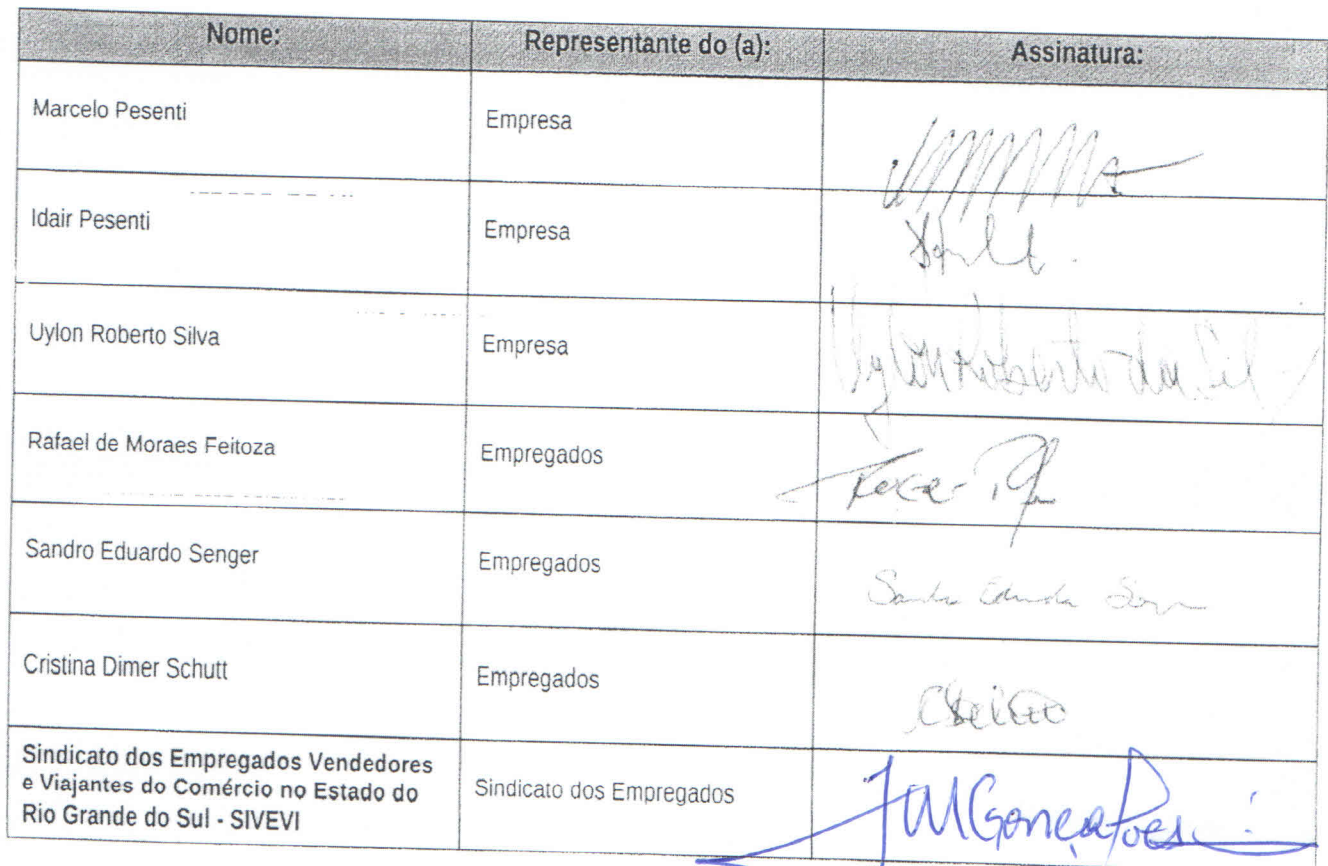 Nome: Representante do (a): Assinatura:
Marcelo Pesenti Empresa
Idair Pesenti Empresa
Uylon Roberto Silva Empresa Uylon Roberto da Sil
Rafael de Moraes Feitoza Empregados
Sandro Eduardo Senger Empregados
Cristina Dimer Schutt Empregados
Sindicato dos Empregados Vendedores
e Viajantes do Comércio no Estado do
Rio Grande do Sul - SIVEVI
Sindicato dos Empregados